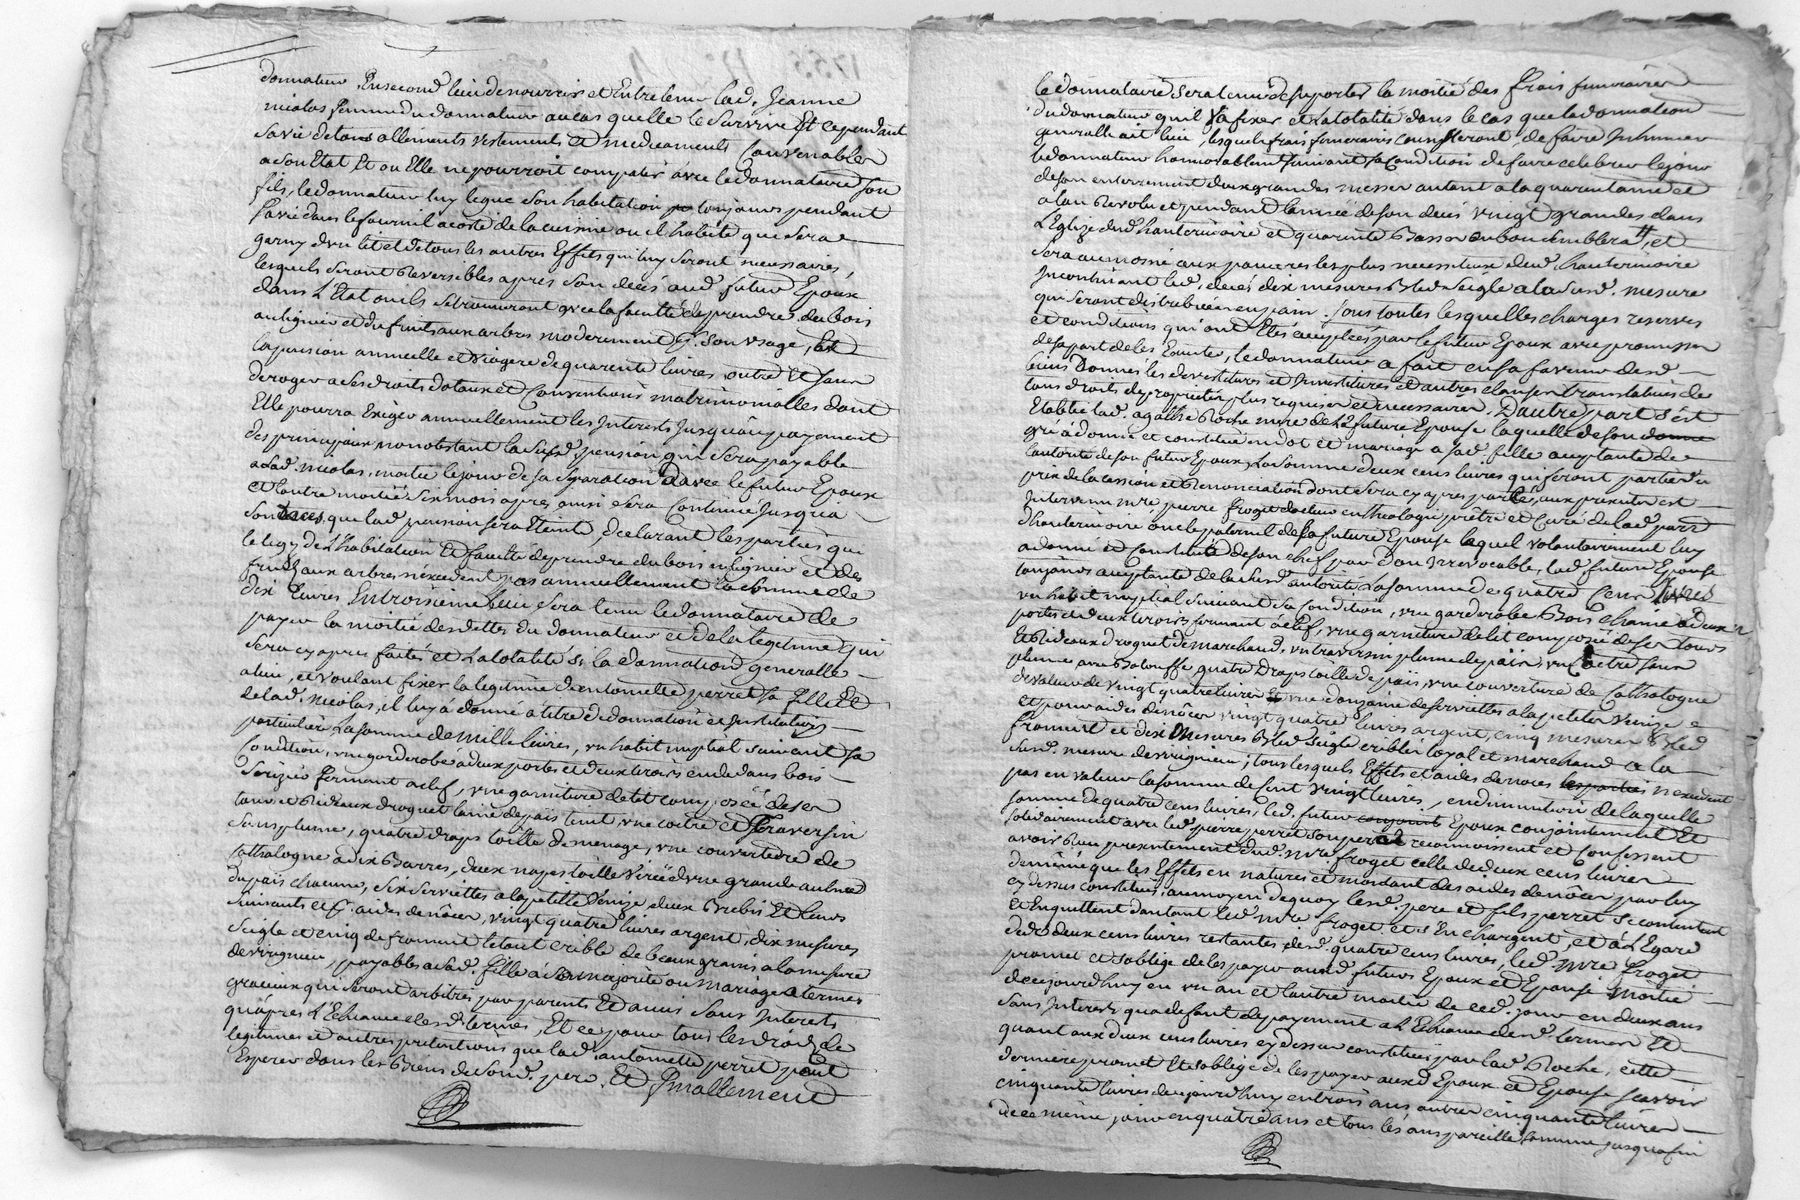 donnateur, En second lieu de nourrir et Entretenir lad. Jeanne
nicolas femme du donnateur au cas quelle le Survive Et ce pendant
Sa vie de tous alliments vestements et medicaments Convenables
a Son Etat Et ou Elle ne pourroit compatir avec le donnataire Son
fils, le donnateur luy legue Son habitation toujours pendant
Sa vie dans le fournil a costé de la cuisine ou il habite qui Sera
garny d'un lit et de tous les autres Effets qui luy Seront necessaires,
lesquels Seront Reversibles apres Son decés aud. futur Epoux
dans L'Etat ou ils Se trouveront avec la faculté de prendre du bois
au lignier et du fruits aux arbres moderement pr. Son usage, et
la pension annuelle et viagere de quarente livres outre et Sans
deroger a Ses droits dotaux et Conventions matrimonialles dont
Elle pourra Exiger annuellement les Interests Jusqu'au payement
des principaux nonobstant la Susd. pension qui Sera payable
a lad. nicolas, moitié le jour de Sa Separation D'avec le futur Epoux
et l'autre moitié Six mois apres, ainsi Sera Continué Jusqu'a
Son deces, que lad. pension Sera Eteinte, declarant les parties que
le legs de L'habitation Et faculté de prendre du bois au lignier et des
fruits aux arbres n'excedent pas annuellement la Somme de
dix livres, En troisieme lieu Sera tenu le donnataire de
payer la moitié des dettes du donnateur et de la legitime qui
Sera cy apres faites et La totalité Si la donnation generalle
a lieu, et voulant fixer la legitime de antoinette perret Sa fille Et
de lad. nicolas, il luy a donné a titre de donnation et Institution
particuliere La Somme de Mille livres, un habit nuptial Suivant Sa
Condition, une garderobe a deux portes et deux tiroirs en dedans bois
Serizier fermant a clef, une garniture de lit composée de Ses
tours et Rideaux droguet laine de païs teint, une coitre et Traversin
Sans plume, quatre draps toille de menage, une couverture de
Cathalogne a dix Barres, deux napes toille Virée d'une grande aulne
du païs chacune, Six Serviettes a la petitte Venize deux Brebis Et leurs
Suivants et pr. aides de nôces, vingt quatre livres argent, dix mesures
Seigle et cinq de froment le tout criblé de beaux grains a la mesure
de virignieu, payables a Sad. fille a Sa majorité ou mariage a termes
gracieux qui Seront arbitrés par parents Et amis Sans Interests
qu'apres L'Echeance desd. termes, Et ce pour tous les droits de
legitimes et autres pretentions que lad. antoinette perret peut
Esperer dans les Biens de Sond. pere. Et Finallement
le donnataire Sera tenu de Suporter la moitié des frais funeraires
du donnateur qu'il Va fixer et La totalité dans le cas que la donnation
generalle ait lieu, lesquels frais funeraires consisteront, de faire Inhumer
le donnateur honnorablement Suivant Sa Condition, de faire celebrer le jour
de Son enterrement deux grandes messes autant a la quarantaine et
a l'an Revolu et pendant l'année de Son decés vingt grandes dans
L'Eglise dud. hauterivoire et quarente Basses ou bon Semblera, et
Sera aumosné aux pauvres les plus necessiteux dud. hauterivoire
Incontinant led. decés dix mesures Bled Seigle a la Susd. mesure
qui Seront distribuées en pain. Sous toutes lesquelles charges reserves
et conditions qui ont Etés acceptées par le futur Epoux avec promesse
de Sa part de les Executer, le donnateur a fait en Sa faveur desd.
biens Donnés les devestitures et Investitures et autres clauses translatives de
tous droits de proprietés plus requises et necessaires. D'autre part s'est
Etablie lad. agathe Roche mere de la future Epouse laquelle de Son
gré a donné et constitué en dot et mariage a Sad. fille acceptante de
l'autorité de Son futur Epoux, La Somme deux cens livres qui feront partie du
prix de la cession et Renonciation dont Sera cy apres parlé, aux presentes est
Intervenu mre. pierre froget docteur en theologie prêtre et Curé de lad. parr.
d'hauterivoire oncle paternel de la future Epouse lequel volontairement luy
a donné et Constitué de Son chef par don Irrevocable, lad. future Epouse
toujours acceptante de la Susd. autorité, La Somme de quatre Cens livres
un habit nuptial Suivant Sa Condition, une garderobe Bois chaine a deux
portes et deux tiroirs fermant a clef, une garniture de lit composée de Ses tours
et Rideaux droguet de marchand, un traversin plume de païs, un Coitre Sans
plume avec Balouffe quatre Draps toille de païs, une couverture de Cathalogne
de valeur de vingt quatre livres et une douzaine de Serviettes a la petite Venize
et pour aides de nôces vingt quatre livres argent, cinq mesures Bled
froment et dix Mesures Bled Seigle criblés loyal et marchand a la
Susd. mesure de virignieu, tous lesquels Effets et aides de noces n'excedent
pas en valeur la Somme de Sept vingt livres, en diminution de laquelle
Somme de quatre cens livres, led. futur Epoux conjointement Et
Solidairement avec led. pierre perret Son pere reconnoissent et Confessent
avoir Reçu presentement dud. mre. froget celle de deux cens livres
de même que les Effets en natures et montant des aides de nôces par luy
cy dessus constitués, au moyen de quoy lesd. pere et fils perret Se contentent
Et Enquittent d'autant led. mre. froget. et S'En chargent, et a L'Egard
desd. deux cens livres restantes desd. quatre cens livres, led. mre. froget
promet et S'oblige de les payer auxd. futurs Epoux et Epouse Moitié
de ce jourd'huy en un an et l'autre moitié de ced. jour en deux ans
Sans Interests qu'a defaut de payement a L'Echeance desd. termes Et
quant aux deux cens livres cy dessus constitués par lad. Roche, cette
derniere promet Et S'oblige de les payer auxd. Epoux et Epouse Scavoir
cinquante livres de ce jourd'huy en trois ans autres cinquante livres
de ce même jour en quatre ans et tous les ans pareille Somme jusqu'a fin